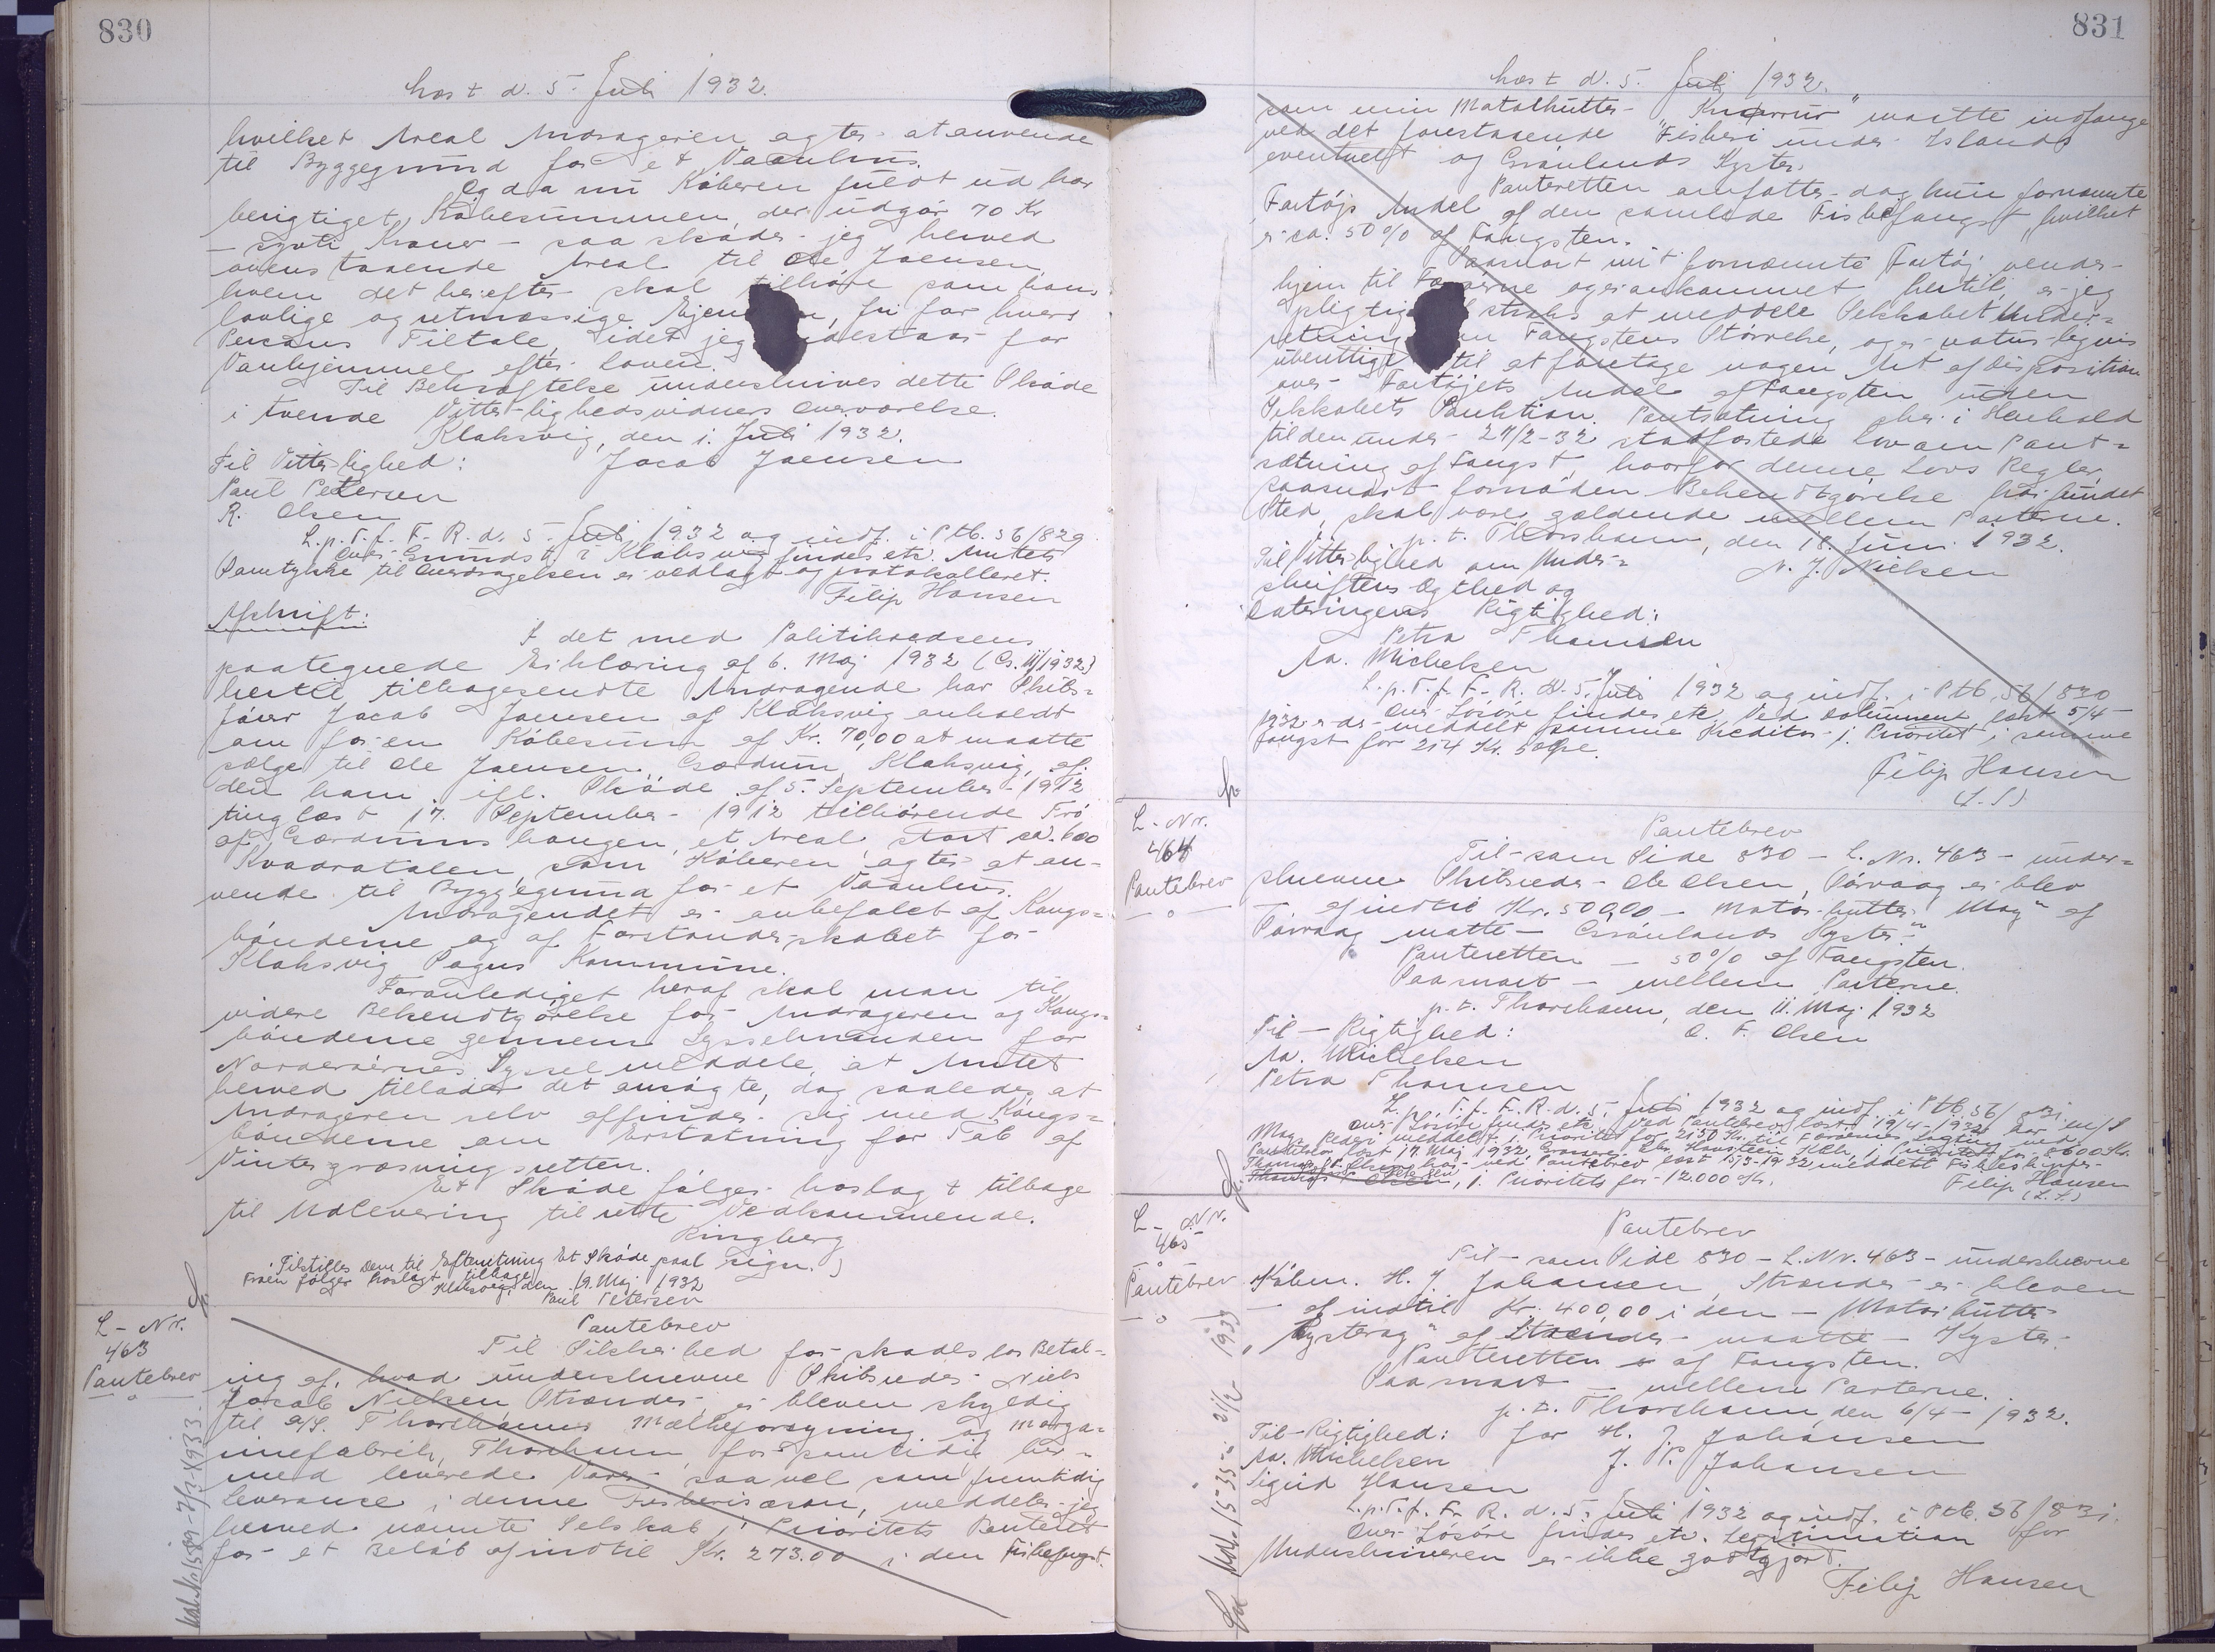 830
læst d. 5. Juli 1932.
hvilket Areal Andrageren agter at anvende
til Byggegrund for et Vaanhus.
Og da nu Køberen fuldt ud har
berigtiget Købesummen, der udgør 70 Kr
- syvti Kroner - saa skøder jeg herved
ovenstaaende Areal til Ole Joensen,
hvem det herefter skal tilhøre som hans
lovlige og retmæssige Ejen n, fri for hvers
Persons Tiltale, idet jeg indestaar for
Vanhjemmel efter Loven.
Til Bekræftelse underskrives dette Skøde
i tvende Vitterlighedsvidners Overværelse.
Klaksvig, den 1. Juli 1932.
Til Vitterlighed: Jacob Joensen
Paul Petersen
R. Olsen
L.p.T.f. F. R. d. 5. Juli 1932 og indf. i Ptb. 56/829
Over Grundst. i Klaksvig findes etc. Amtets
Samtykke til Overdragelsen er vedlagt og protokolleret.
Filip Hansen
Afskrift:
I det med Politikredsens
paategnede Erklæring af 6. Maj 1932
hertil tilbagesendte Andragende har Skibs=
fører Jacob Joensen af Klaksvig anholdt
om for en Købesum af Kr. 70,00 at maatte
sælge til Ole Joensen, Gærdum, Klaksvig, af
den ham igl. Skøde af 5. September 1912
tinglæst 17. September 1912 tilhørende Trø
af Gærdumshaugen, et Areal, stort ca. 600
Kvadratalen, som Køberen agter at an-
vende til Byggegrund for et Vaanhus.
Andragendet er anbefalet af Kongs=
bønderne og af Forstanderskabet for
Klaksvig Sogns Kommune.
Foranlediget heraf skal man til
videre Bekendtgørelse for Andrageren og Kongs=
bønderne gennem Sysselmanden for
Norderøernes Syssel meddele, at Amtet
herved tillader det ansøgte, dog saaledes at
Andrageren selv affinder sig med Kongs=
bønderne om Erstatning for Tab af
Vintergræsningsretten.
Et Skøde følger hoslagt tilbage
til Udlevering til rette Vedkommende.
Ringberg
sign.
Tilstilles Dem til Efterretning Et Skøde paal
Trøen følger hoslagt tilbage
Klaksvig, den 19. Maj 1932
Paul Petersen
L - Nr.
463
Pantebrev
Pantebrev
Til Sikkerhed for skadesløs Betal=
ing af, hvad underskrevne Skibsreder Niels
Jacob Nielsen Strænder, er bleven skyldig
til A/S. Thorshavns Mælkeforsyning og Marga=
rinefabrik, Thorshavn, for samtidig her=
med leverede Varer saavel som fremtidig
Leverance i denne Fiskerisæson, meddeler jeg
herved nævnte Selskab 1' Prioritets Panteret
for et Beløb af indtil Kr. 273.00 i den Fiskefangst
831
læst d. 5. Juli 1932.
som min Motorkutter "Kuderrur" maatte indfange
ved det forestaaende Fiskeri under Islands
eventuelt og Grønlands Kyster.
Panteretten omfatter dog kun fornævnte
Fartøjs Andel af den samlede Fiskefangst, hvilket
er ca. 50 % af Fangsten.
Saasnart mit fornævnte Fartøj vender
hjem til Færøerne og er ankommet hertil, er jeg
pligtig straks at meddele Selskabet Under=
retning Fangstens Størrelse, og er naturligvis
uberettiget til at foretage nogen Art af Disposition
over Fartøjets Andel af Fangsten uden
Selskabets Sanktion. Pantsætning sker i Henhold
til den under 27/2-32 stadfæstede Lov om Pant=
sætning af Fangst, hvorfor denne Lovs Regler,
saasnart fornøden Bekendtgørelse har fundet
Sted, skal være gældende mellem Parterne.
p. t. Thorshavn, den 18. Juni 1932.
Til Vitterlighed om Under= N. J. Nielsen
skriftens Ægthed og
Dateringens Rigtighed:
Petra Thomsen
M. Michelsen
L.p.T.f. F. R. d. 5. Juli 1932 og indf. i Ptb. 56/830
Over Løsøre findes etc. Ved Dokument læst 5/4-
1932 er der meddelt samme Kreditor 1. Prioritet i samme
Fangst for 214 Kr. 50 Øre.
Filip Hansen
(L.S.)
L - Nr.
464
Pantebrev
Pantebrev
Til - som Side 830 - L. Nr. 463 - under=
skrevne Skibsreder Ole Olsen, Sørvaag er blev
- af indtil Kr. 500,00 - Motorkutter "Mag" af
Sørvaag maatte - Grønlands Kyster.
Panteretten - 50 % af Fangsten.
Saasnart - mellem Parterne.
p. t. Thorshavn, den 11. Maj 1932
Til - Rigtighed: O. F. Olsen
M. Michelsen
Petra Thomsen
L.p.T.f. F. R. d. 5. Juli 1932 og indf. i Ptb. 56/831.
Over Løsøre findes etc. Ved Pantebrev læst 19/4-1932 har m/S
Mag Rederi meddelt 1. Prioritet for 2150 Kr. til Færøernes Lagting ved
Pantebrev læst 17. Maj 1932 8600 Kr.
ved Pantebrev læst 15/3-1932 meddelt Fiskeskipper
1. Prioritets for 12.000 Kr. Filip Hansen
(L.S.)
L - Nr.
465
Pantebrev
Pantebrev
Til - som Side 830 - L. Nr. 463 - underskrevne
Købm. H. J. Johansen, Strænder er bleven
- af indtil Kr. 400,00 i den - Motorkutter
"Kysterag" af Strænder maatte - Kyster.
Panteretten - af Fangsten.
Saasnart - mellem Parterne.
p. t. Thorshavn, den 6/4 - 1932.
Til - Rigtighed: for H. J. Johansen
M. Michelsen J. P. Johansen
Sigrid Hansen
L.p.T.f. F. R. d. 5. Juli 1932 og indf. i Ptb. 56/831.
Over Løsøre findes etc. Legitimation for
Underskriveren er ikke godtgjort.
Filip Hansen